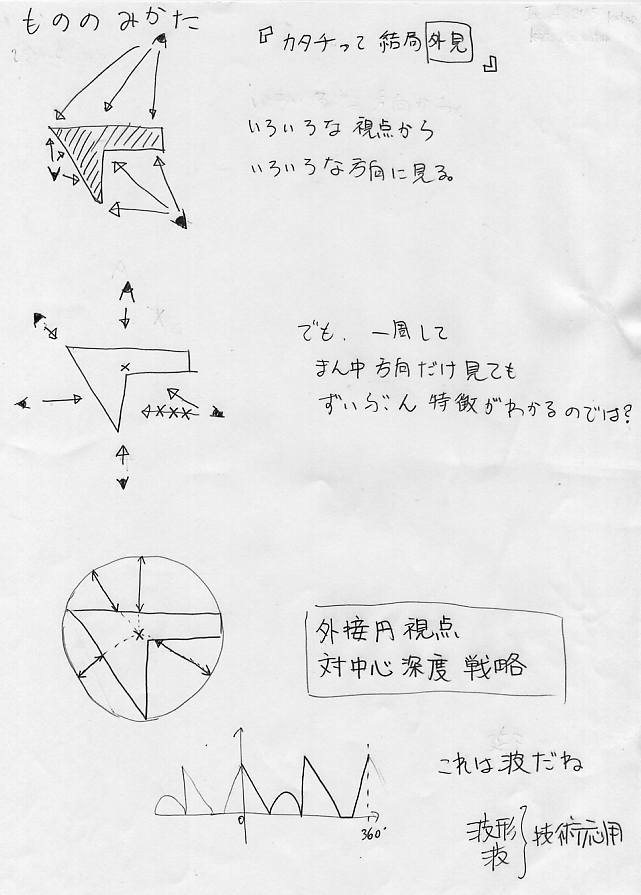 もののみかた
『カタチって結局外見』
いろいろな視点から
いろいろな方向に見る。
でも、一周して
まん中方向だけ見ても
ずいぶん特徴がわかるのでは?
外接円視点
対中心深度戦略
0
360°
これは波だね
波形
波
技術応用